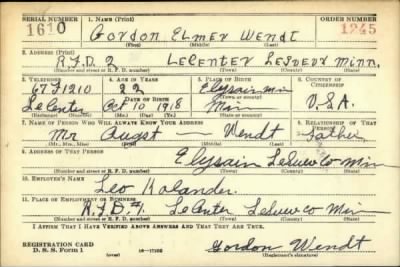 SERIAL NUMBER 1. NAME (Print) ORDER NUMBER
1610 Gordon Elmer Wendt 1245
(First) (Middle) (Last)
2. ADDRESS (Print)
R.F.D. 2 LeCenter LeSueur Minn.
(Number and street or R. F. D. number) (Town) (County) (State)
3. TELEPHONE 4. AGE IN YEARS 5. PLACE OF BIRTH 6. COUNTRY OF CITIZENSHIP
67F1210 22 Elysain Min
DATE OF BIRTH (Town or county)
LeCenter Oct 10 1918 Min U.S.A.
(Exchange) (Number) (Mo.) (Day) (Yr.) (State or country)
7. NAME OF PERSON WHO WILL ALWAYS KNOW YOUR ADDRESS 8. RELATIONSHIP OF THAT PERSON
Mr August — Wendt Father
(Mr., Mrs., Miss) (First) (Middle) (Last)
9. ADDRESS OF THAT PERSON
Elysain LeSueur Co Min
(Number and street or R. F. D. number) (Town) (County) (State)
10. EMPLOYER'S NAME
Leo Kolander
11. PLACE OF EMPLOYMENT OR BUSINESS
R.F.D.#1. LeCenter LeSueur Co Min
(Number and street or R. F. D. number) (Town) (County) (State)
I AFFIRM THAT I HAVE VERIFIED ABOVE ANSWERS AND THAT THEY ARE TRUE.
REGISTRATION CARD
D. S. S. Form 1 (over) Gordon Wendt
(Registrant's signature)